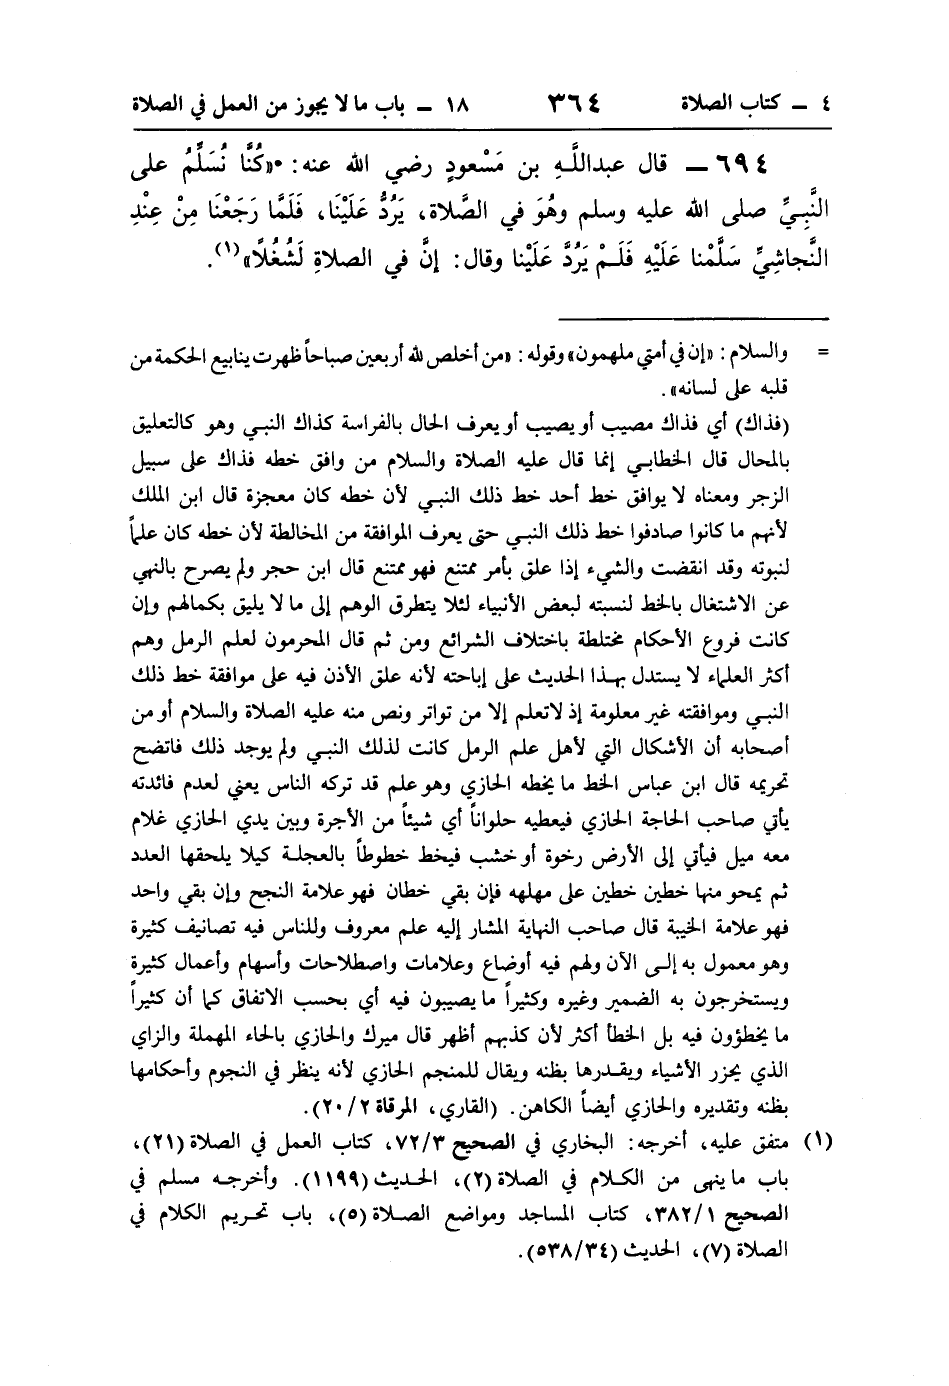 ٤ ـ كتاب الصلاة ٣٦٤ ١٨ ـ باب ما لا يجوز من العمل في الصلاة
٦٩٤ ـ قال عبداللَّهِ بن مَسْعودٍ رضي الله عنه: «كُنَّا نُسَلِّمُ على
النَّبِيِّ صلى الله عليه وسلم وهُوَ في الصَّلاة، يَرُدُّ عَلَيْنَا، فَلَمَّا رَجَعْنَا مِنْ عِنْدِ
النَّجاشِيِّ سَلَّمْنا عَلَيْهِ فَلَمْ يَرُدَّ عَلَيْنا وقال: إنَّ في الصلاةِ لَشُغُلاً»(١).
= والسلام: «إن في أمتي ملهمون» وقوله: «من أخلص لله أربعين صباحاً ظهرت ينابيع الحكمة من
قلبه على لسانه».
(فذاك) أي فذاك مصيب أو يصيب أو يعرف الحال بالفراسة كذاك النبي وهو كالتعليق
بالمحال قال الخطابي إنما قال عليه الصلاة والسلام من وافق خطه فذاك على سبيل
الزجر ومعناه لا يوافق خط أحد خط ذلك النبي لأن خطه كان معجزة قال ابن الملك
لأنهم ما كانوا صادفوا خط ذلك النبي حتى يعرف الموافقة من المخالطة لأن خطه كان علماً
لنبوته وقد انقضت والشيء إذا علق بأمر ممتنع فهو ممتنع قال ابن حجر ولم يصرح بالنهي
عن الاشتغال بالخط لنسبته لبعض الأنبياء لئلا يتطرق الوهم إلى ما لا يليق بكمالهم وإن
كانت فروع الأحكام مختلطة باختلاف الشرائع ومن ثم قال المحرمون لعلم الرمل وهم
أكثر العلماء لا يستدل بهذا الحديث على إباحته لأنه علق الأذن فيه على موافقة خط ذلك
النبي وموافقته غير معلومة إذ لاتعلم إلا من تواتر ونص منه عليه الصلاة والسلام أو من
أصحابه أن الأشكال التي لأهل علم الرمل كانت لذلك النبي ولم يوجد ذلك فاتضح
تحريمه قال ابن عباس الخط ما يخطه الحازي وهو علم قد تركه الناس يعني لعدم فائدته
يأتي صاحب الحاجة الحازي فيعطيه حلواناً أي شيئاً من الأجرة وبين يدي الحازي غلام
معه ميل فيأتي إلى الأرض رخوة أو خشب فيخط خطوطاً بالعجلة كيلا يلحقها العدد
ثم يمحو منها خطين خطين على مهلهه فإن بقي خطان فهو علامة النجح وإن بقي واحد
فهو علامة الخيبة قال صاحب النهاية المشار إليه علم معروف وللناس فيه تصانيف كثيرة
وهو معمول به إلى الآن ولهم فيه أوضاع وعلامات واصطلاحات وأسهام وأعمال كثيرة
ويستخرجون به الضمير وغيره وكثيراً ما يصيبون فيه أي بحسب الاتفاق كما أن كثيراً
ما يخطؤون فيه بل الخطأ أكثر لأن كذبهم أظهر قال ميرك والحازي بالحاء المهملة والزاي
الذي يحزر الأشياء ويقدرها بظنه ويقال للمنجم الحازي لأنه ينظر في النجوم وأحكامها
بظنه وتقديره والحازي أيضاً الكاهن. (القاري، المرقاة ٢/٢٠).
(١) متفق عليه، أخرجه: البخاري في الصحيح ٣/٧٢، كتاب العمل في الصلاة (٢١)،
باب ما ينهى من الكلام في الصلاة (٢)، الحديث (١١٩٩). وأخرجه مسلم في
الصحيح ١/٣٨٢، كتاب المساجد ومواضع الصلاة (٥)، باب تحريم الكلام في
الصلاة (٧)، الحديث (٥٣٨/٣٤).